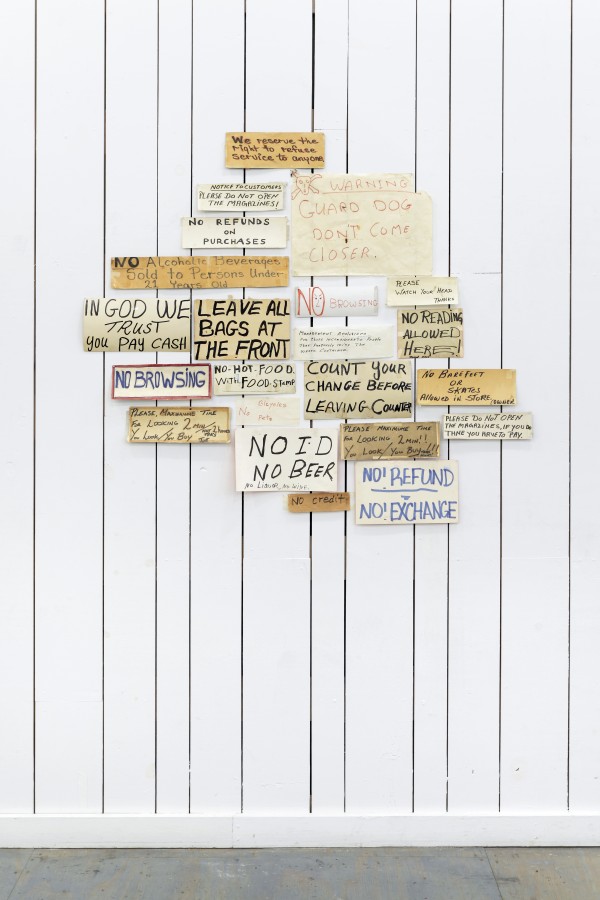 We reserve the
right to refuse
service to anyone
NOTICE TO CUSTOMERS
PLEASE DO NOT OPEN
THE MAGAZINES!
WARNING
GUARD DOG
DON'T COME
CLOSER.
NO REFUNDS
ON
PURCHASES
NO Alcoholic Beverages
Sold to Persons Under
21 Years Old
PLEASE
WATCH YOUR HEAD
THANKS
IN GOD WE
TRUST
YOU PAY CASH
LEAVE ALL
BAGS AT
THE FRONT
NO BROWSING
NO READING
ALLOWED
HERE!
NO BROWSING
NO-HOT-FOOD
WITH FOOD STAMP
COUNT YOUR
CHANGE BEFORE
LEAVING COUNTER
NO BAREFEET
OR
SKATES
ALLOWED IN STORE
OWNER
No Bicycles
Pets
PLEASE, MAXIMUME TIME
FOR LOOKING 2 MIN
YOU LOOK/YOU BUY
PLEASE MAXIMUME TIME
FOR LOOKING, 2 MIN!!
YOU LOOK/YOU BUY
PLEASE DO NOT OPEN
THE MAGAZINES, IF YOU DO
THNE YOU HAVE TO PAY.
NO I.D
NO BEER
NO LIQUOR, NO WINE.
NO! REFUND
NO! EXCHANGE
NO credit